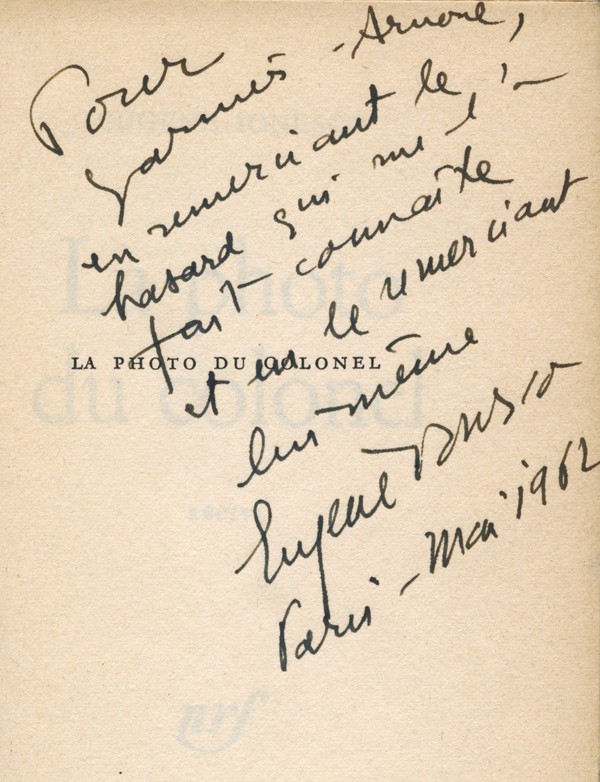 Pour
- Arnone,
en remerciant le
hasard qui me l'a
fait connaître
LA PHOTO DU COLONEL
et en le remerciant
lui-même
Eugène Ionesco
Paris - Mai 1962
La photo
du colonel
récits
nrf